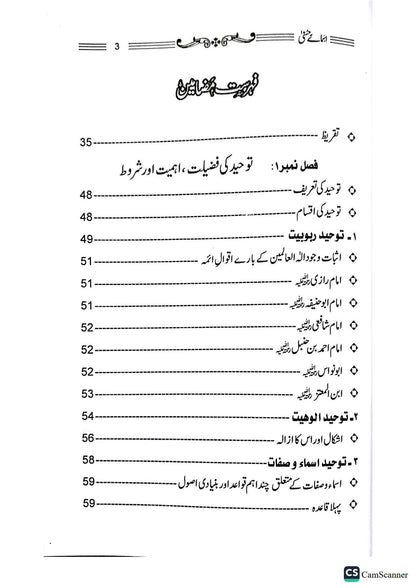 اسمائے حسنیٰ 3
فہرست مضامین
تقریظ 35
فصل نمبر۱: توحید کی فضیلت، اہمیت اور شروط
توحید کی تعریف 48
توحید کی اقسام 48
۱۔ توحید ربوبیت 49
اثبات وجود الٰہ العالمین کے بارے اقوال ائمہ 51
امام رازی رحمہ اللہ 51
امام ابو حنیفہ رحمہ اللہ 51
امام شافعی رحمہ اللہ 52
امام احمد بن حنبل رحمہ اللہ 52
ابو نواس رحمہ اللہ 52
ابن المعتز رحمہ اللہ 53
۲۔ توحید الوھیت 54
اشکال اور اس کا ازالہ 56
۳۔ توحید اسماء و صفات 58
اسماء و صفات کے متعلق چند اہم قواعد اور بنیادی اصول 59
پہلا قاعدہ 59
CS CamScanner